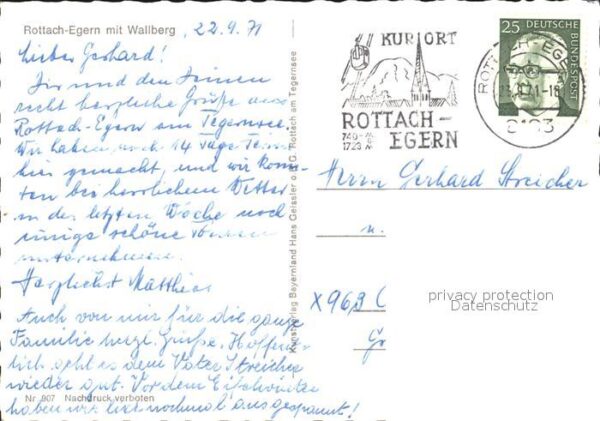 Rottach-Egern mit Wallberg
22.9.71
Lieber Gerhard!
Dir und den Deinen
recht herzliche Grüße aus
Rottach-Egern am Tegernsee.
Wir haben noch 14 Tage
hier gemacht, und wir konn-
ten bei herrlichem Wetter
in der letzten Woche noch
einige schöne
unternehmen.
Herzlichst Matthias
Auch von mir für die ganze
Familie herzl. Grüße. Hoffent-
lich geht es dem Vater Streicher
wieder gut. Vor dem
haben wir hier nochmal ausgespannt!
Nr. 907 Nachdruck verboten
Kunstverlag Bayernland Hans Geissler o.H.G. Rottach am Tegernsee
KURORT
ROTTACH-
EGERN
740-
1723 m
ROTTACH-EGERN
8183
25 DEUTSCHE BUNDESPOST
Herrn Gerhard Streicher
u.
X 963 C
G
privacy protection
Datenschutz